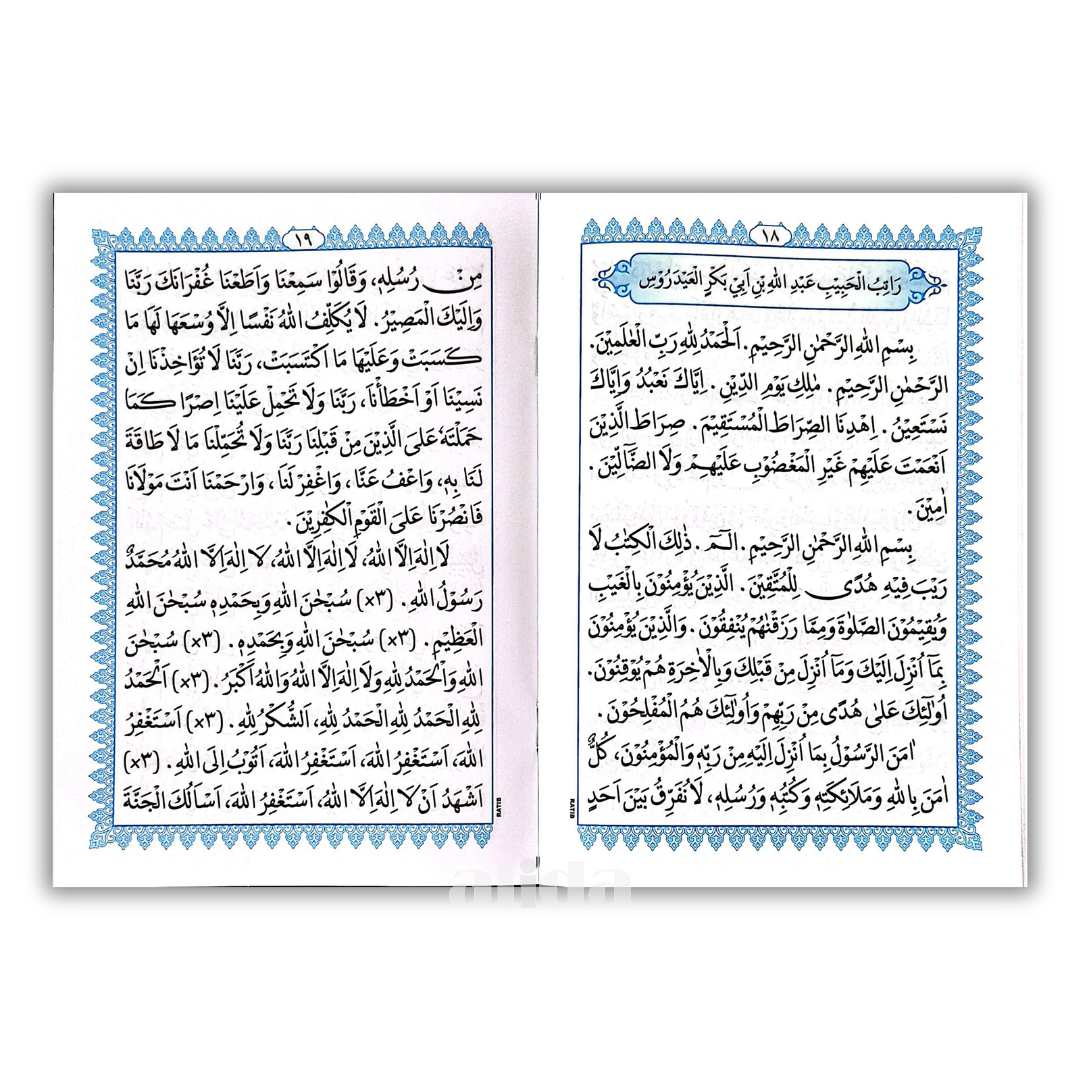 ١٨
رَاتِبُ الْحَبِيْبِ عَبْدِ اللهِ بْنِ اَبِيْ بَكْرٍ الْعَيْدَرُوْسِ
بِسْمِ اللهِ الرَّحْمٰنِ الرَّحِيْمِ. اَلْحَمْدُ لِلهِ رَبِّ الْعٰلَمِيْنَ.
الرَّحْمٰنِ الرَّحِيْمِ. مٰلِكِ يَوْمِ الدِّيْنِ. اِيَّاكَ نَعْبُدُ وَاِيَّاكَ
نَسْتَعِيْنُ. اِهْدِنَا الصِّرَاطَ الْمُسْتَقِيْمَ. صِرَاطَ الَّذِيْنَ
اَنْعَمْتَ عَلَيْهِمْ غَيْرِ الْمَغْضُوْبِ عَلَيْهِمْ وَلَا الضَّآلِّيْنَ.
اٰمِيْنَ.
بِسْمِ اللهِ الرَّحْمٰنِ الرَّحِيْمِ. الٓمٓ. ذٰلِكَ الْكِتٰبُ لَا
رَيْبَ فِيْهِ هُدًى لِلْمُتَّقِيْنَ. الَّذِيْنَ يُؤْمِنُوْنَ بِالْغَيْبِ
وَيُقِيْمُوْنَ الصَّلٰوةَ وَمِمَّا رَزَقْنٰهُمْ يُنْفِقُوْنَ. وَالَّذِيْنَ يُؤْمِنُوْنَ
بِمَآ اُنْزِلَ اِلَيْكَ وَمَآ اُنْزِلَ مِنْ قَبْلِكَ وَبِالْاٰخِرَةِ هُمْ يُوْقِنُوْنَ.
اُولٰٓئِكَ عَلٰى هُدًى مِنْ رَبِّهِمْ وَاُولٰٓئِكَ هُمُ الْمُفْلِحُوْنَ.
اٰمَنَ الرَّسُوْلُ بِمَآ اُنْزِلَ اِلَيْهِ مِنْ رَبِّهٖ وَالْمُؤْمِنُوْنَ، كُلٌّ
اٰمَنَ بِاللهِ وَمَلَائِكَتِهٖ وَكُتُبِهٖ وَرُسُلِهٖ، لَا نُفَرِّقُ بَيْنَ اَحَدٍ
RATIB
١٩
مِنْ رُسُلِهٖ، وَقَالُوْا سَمِعْنَا وَاَطَعْنَا غُفْرَانَكَ رَبَّنَا
وَاِلَيْكَ الْمَصِيْرُ. لَا يُكَلِّفُ اللهُ نَفْسًا اِلَّا وُسْعَهَا لَهَا مَا
كَسَبَتْ وَعَلَيْهَا مَا اكْتَسَبَتْ، رَبَّنَا لَا تُؤَاخِذْنَا اِنْ
نَسِيْنَا اَوْ اَخْطَأْنَا، رَبَّنَا وَلَا تَحْمِلْ عَلَيْنَا اِصْرًا كَمَا
حَمَلْتَهٗ عَلَى الَّذِيْنَ مِنْ قَبْلِنَا رَبَّنَا وَلَا تُحَمِّلْنَا مَا لَا طَاقَةَ
لَنَا بِهٖ، وَاعْفُ عَنَّا، وَاغْفِرْ لَنَا، وَارْحَمْنَا اَنْتَ مَوْلَانَا
فَانْصُرْنَا عَلَى الْقَوْمِ الْكٰفِرِيْنَ.
لَا اِلٰهَ اِلَّا اللهُ، لَا اِلٰهَ اِلَّا اللهُ، لَا اِلٰهَ اِلَّا اللهُ مُحَمَّدٌ
رَسُوْلُ اللهِ. (×٣) سُبْحٰنَ اللهِ وَبِحَمْدِهٖ سُبْحٰنَ اللهِ
الْعَظِيْمِ. (×٣) سُبْحٰنَ اللهِ وَبِحَمْدِهٖ. (×٣) سُبْحٰنَ
اللهِ وَالْحَمْدُ لِلهِ وَلَا اِلٰهَ اِلَّا اللهُ وَاللهُ اَكْبَرُ. (×٣) اَلْحَمْدُ
لِلهِ الْحَمْدُ لِلهِ الْحَمْدُ لِلهِ، اَلشُّكْرُ لِلهِ. (×٣) اَسْتَغْفِرُ
اللهَ، اَسْتَغْفِرُ اللهَ، اَسْتَغْفِرُ اللهَ، اَتُوْبُ اِلَى اللهِ. (×٣)
اَشْهَدُ اَنْ لَا اِلٰهَ اِلَّا اللهُ، اَسْتَغْفِرُ اللهَ، اَسْأَلُكَ الْجَنَّةَ
RATIB
alida